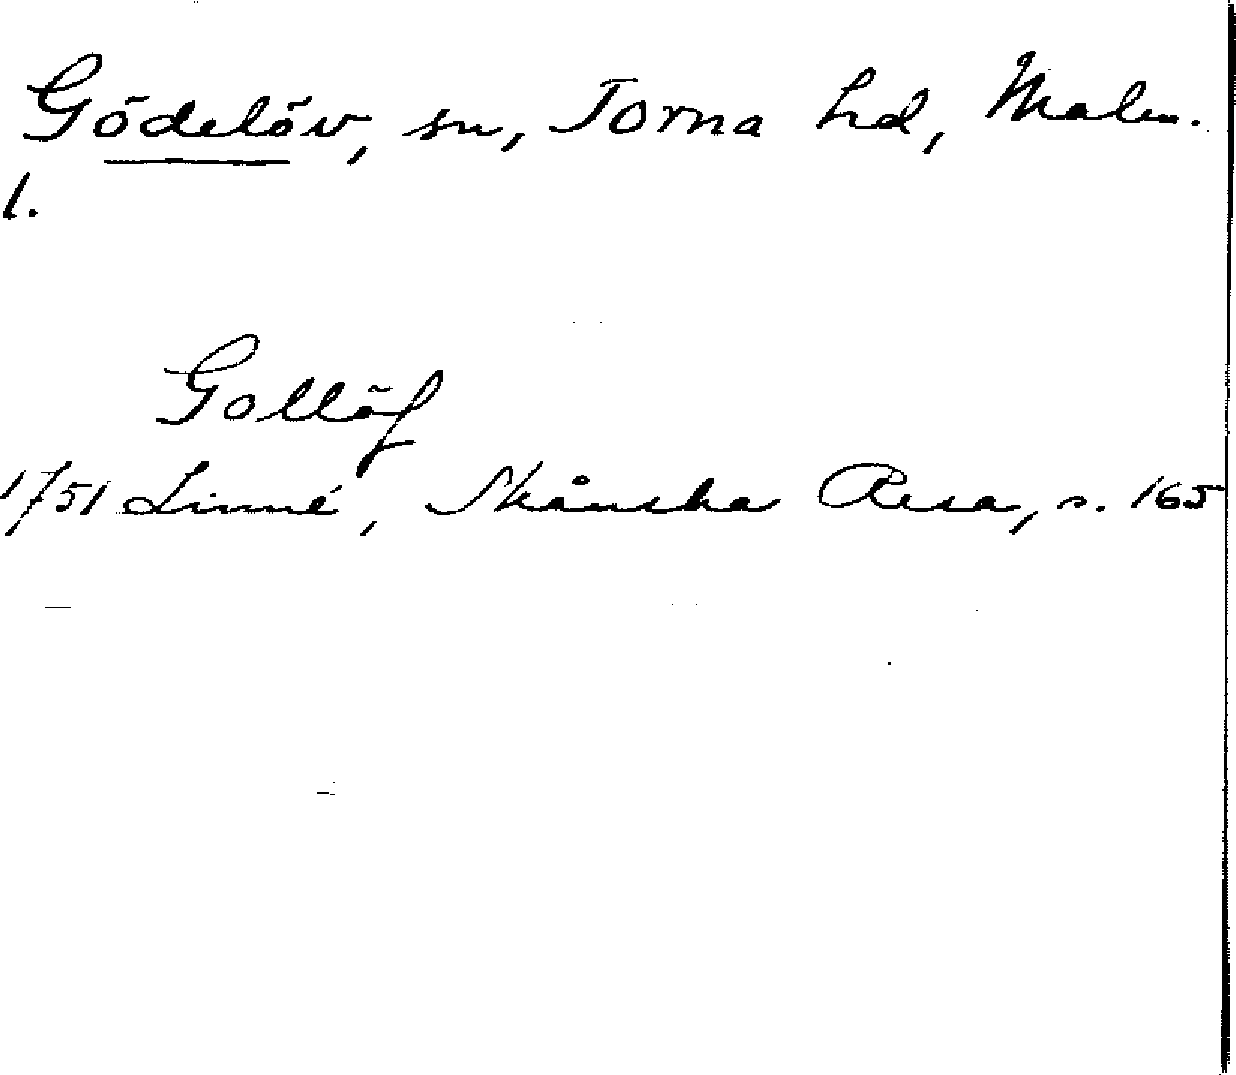 Gödelöv, sn, Torna hd, Malm.
l.
Gollöf
1751 Linné, Skånska Resa, s. 165